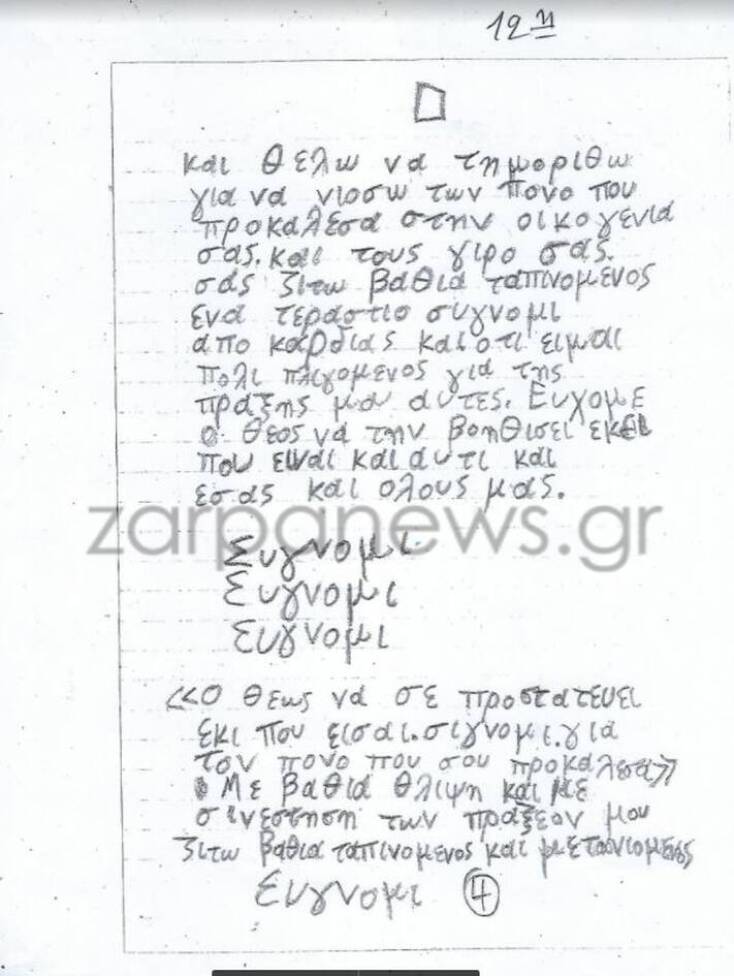 12η
και θελω να τημοριθω
για να νιοσω των πονο που
προκαλεσα στην οικογενια
σας. και τους γιρο σας.
σάς ζιτω βαθιά ταπινομενος
ενα τεραστιο συγνομι
απο καρδιας και οτι ειμαι
πολι πλιγομενος για της
πραξης μου αυτες. Ευχομε
ο θεος να την βοηθισει εκει
που ειναι και αυτι και
εσας και ολους μας.
zarpanews.gr
Συγνομι
Συγνομι
Συγνομι
<<Ο θεως να σε προστατευει
εκι που εισαι. σιγνομι. για
τον πονο που σου προκαλεσα>>
Με βαθιά θλιψη και με
σινεστηση των πραξεον μου
ζιτω βαθια ταπινομενος και μετανιομενος
Συγνομι 4